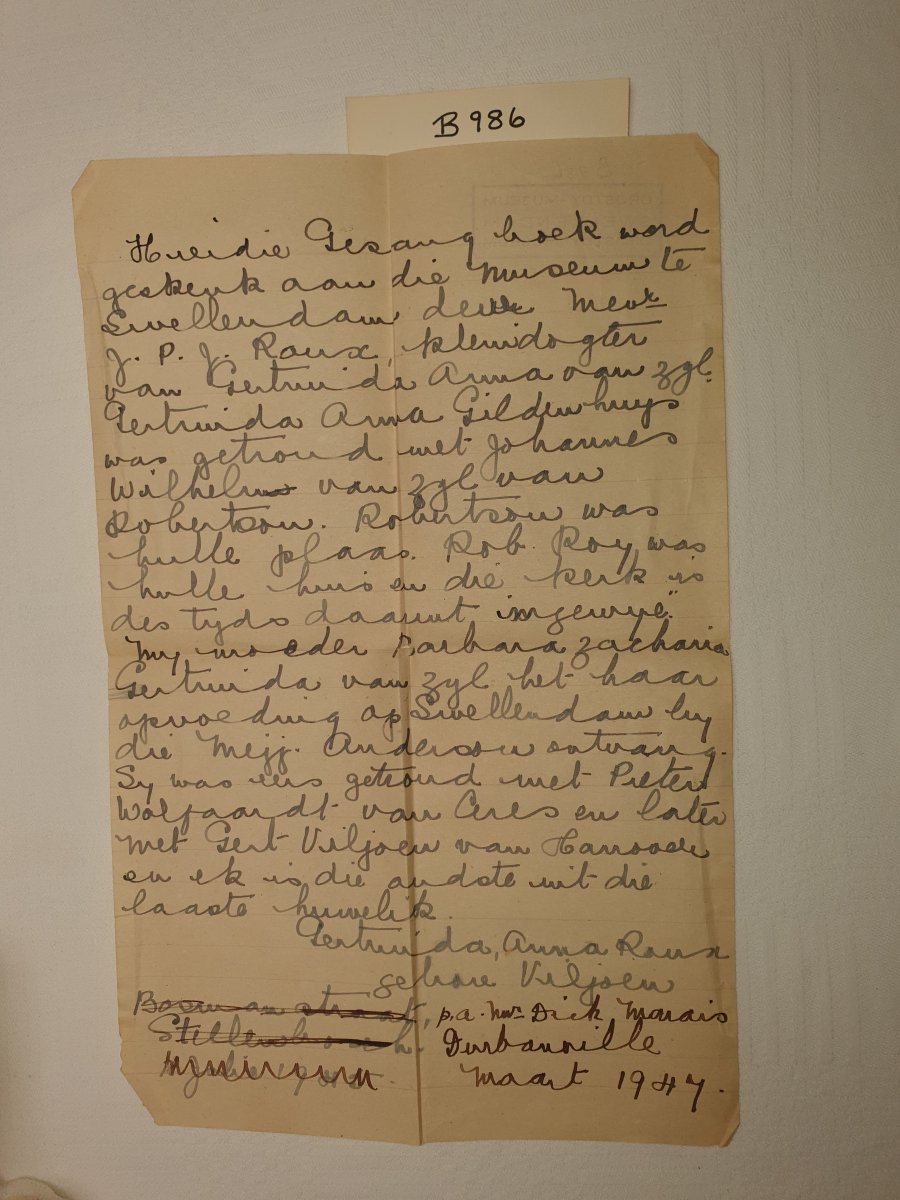 B 986
Hierdie Gesang boek word
geskenk aan die Museum te
Swellendam deur Mevr
J. P. J. Roux, kleindogter
van Gertruida Anna van Zyl.
Gertruida Anna Gildenhuys
was getroud met Johannes
Wilhelm van Zyl van
Robertson. Robertson was
hulle plaas. Rob Roy was
hulle huis en die kerk is
des tyds daaruit ingewye."
My moeder Barbara Zacharia
Gertruida van Zyl het haar
opvoeding op Swellendam by
die Mejj. Anderson ontvang.
Sy was eers getroud met Pieter
Wolfaardt van Ceres en later
met Gert Viljoen van
en ek is die oudste uit die
laaste huwelik.
Gertruida, Anna Roux
gebore Viljoen
Bosman straat, p.a. Mev. Dick Marais
Stellenbosch. Durbanville
Maart 1947.